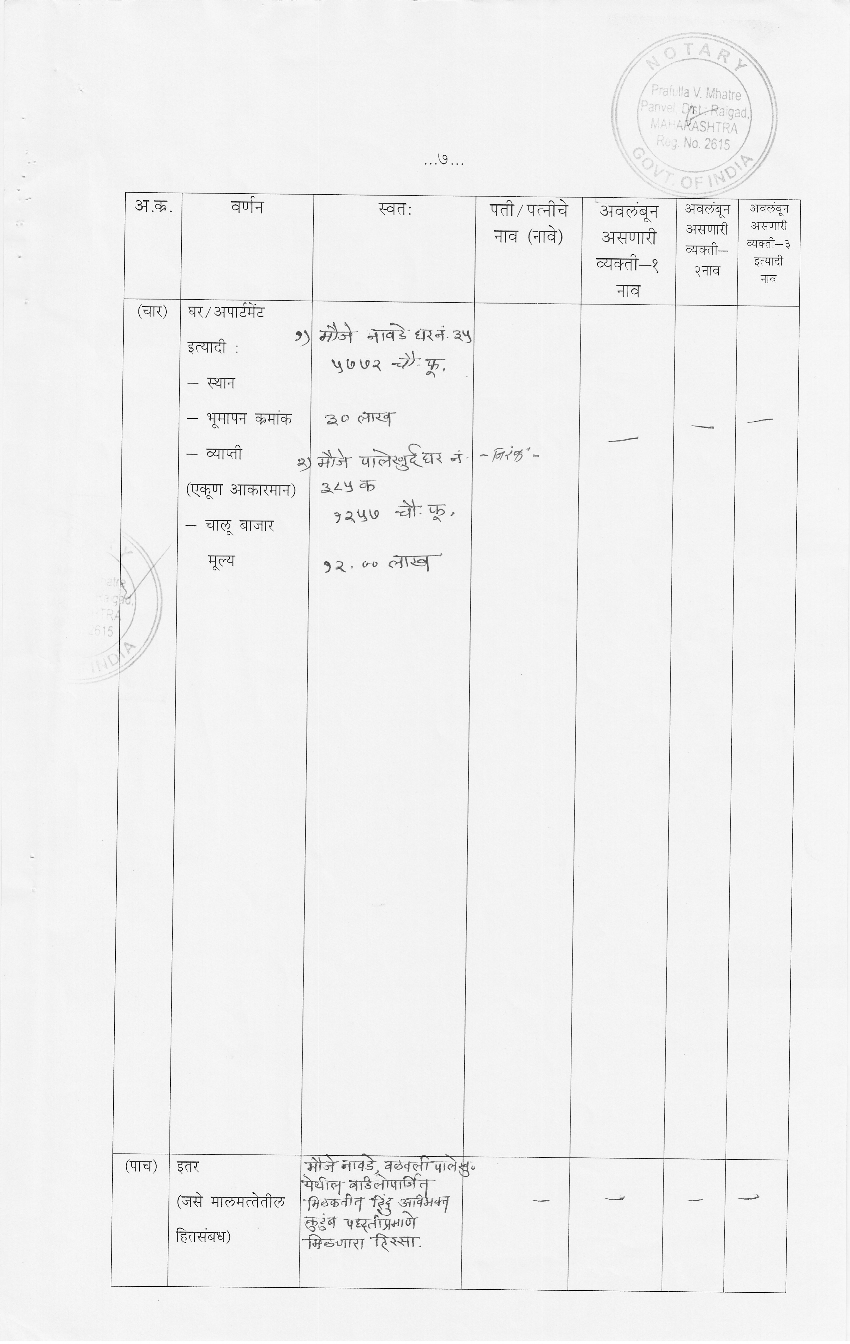 NOTARY
Prafulla V. Mhatre
Panvel, Dist. Raigad,
MAHARASHTRA
Reg. No. 2615
GOVT. OF INDIA
...७...
अ.क्र.
वर्णन
स्वत:
पती/पत्नीचे
नाव (नावे)
अवलंबून
असणारी
व्यक्ती–१
नाव
अवलंबून
असणारी
व्यक्ती–
२नाव
अवलंबून
असणारी
व्यक्ती–३
इत्यादी
नाव
(चार)
घर/अपार्टमेंट
इत्यादी :
– स्थान
– भूमापन क्रमांक
– व्याप्ती
(एकूण आकारमान)
– चालू बाजार
मूल्य
१) मौजे नावडे घर नं. ३५
५७७२ चौ. फू.
३० लाख
२) मौजे पालेखुर्द घर नं.
३८५ क
१२५७ चौ. फू.
१२.०० लाख
- निरंक -
—
—
—
2615
INDIA
(पाच)
इतर
(जसे मालमत्तेतील
हितसंबध)
मौजे नावडे, वळवली पालेखु.
येथील वाडिलोपार्जित
मिळकतीत हिंदु अविभक्त
कुटुंब पध्दतीप्रमाणे
मिळणारा हिस्सा.
—
—
—
—